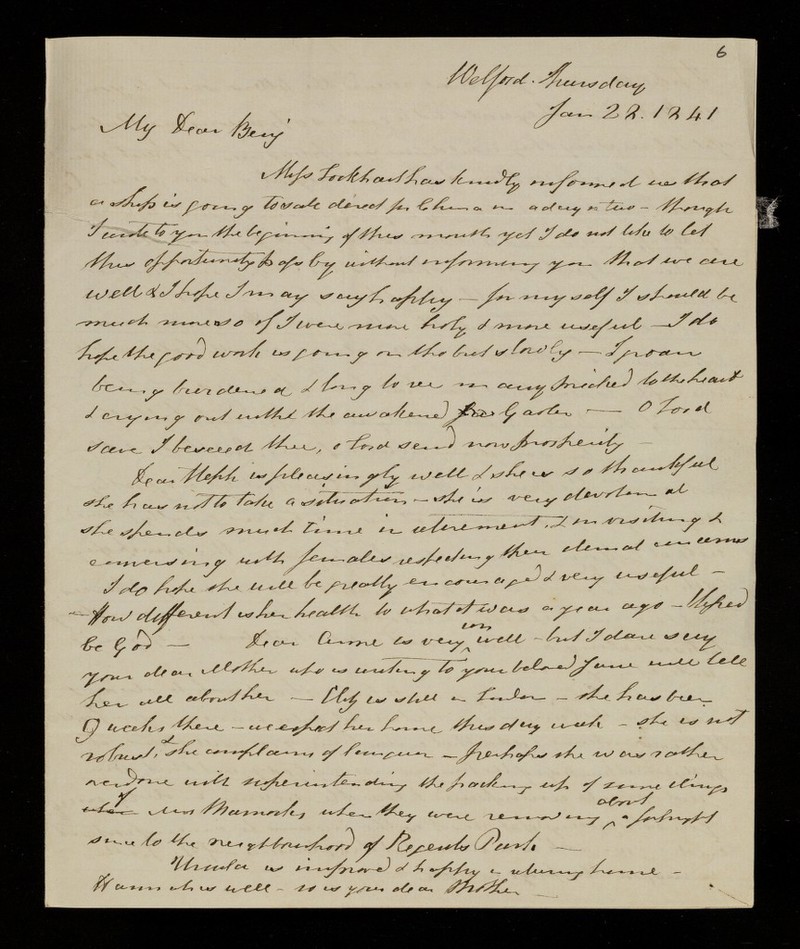 6
Welford. Thursday
Jan 22. 1841
My Dear Benj
Miss Lockhart has kindly informed us that
a ship is going to sale direct for China in a day or two - though
I wrote to you the beginning of this month yet I do not like to let
this opportunity pass by without informing you that we are
well & I hope I may say happy - for myself I should be
much more so if I were more holy & more useful - I do
hope the good work is going on tho but slowly - I groan
being burdened & long to see many pricked to the heart
& crying out with the awakened - O Lord
save I beseech thee, o Lord send now prosperity -
Dear Steph is pleasingly well & she is so thankful
she has not to take a situation - she is very devotional
she spends much time in retirement, & in visiting &
conversing with females respecting their eternal concerns
I do hope she will be greatly encouraged & very useful -
How different is her health to what it was a year ago - Blessed
be God - Dear Anne is very well - but I dare say
your dear Mother who is writing to your beloved Jane will tell
her all about her - is still in London - she has been
9 weeks there - we expect her home this day week - she is not
robust, & she complains of languor - perhaps she was rather
overdone with superintending the packing up of some things
of Mrs when they were removing about a fortnight
since to the neighbourhood of Regents Park -
Ursula is improved & happy in returning home -
Hannah is well - so is your dear Mother